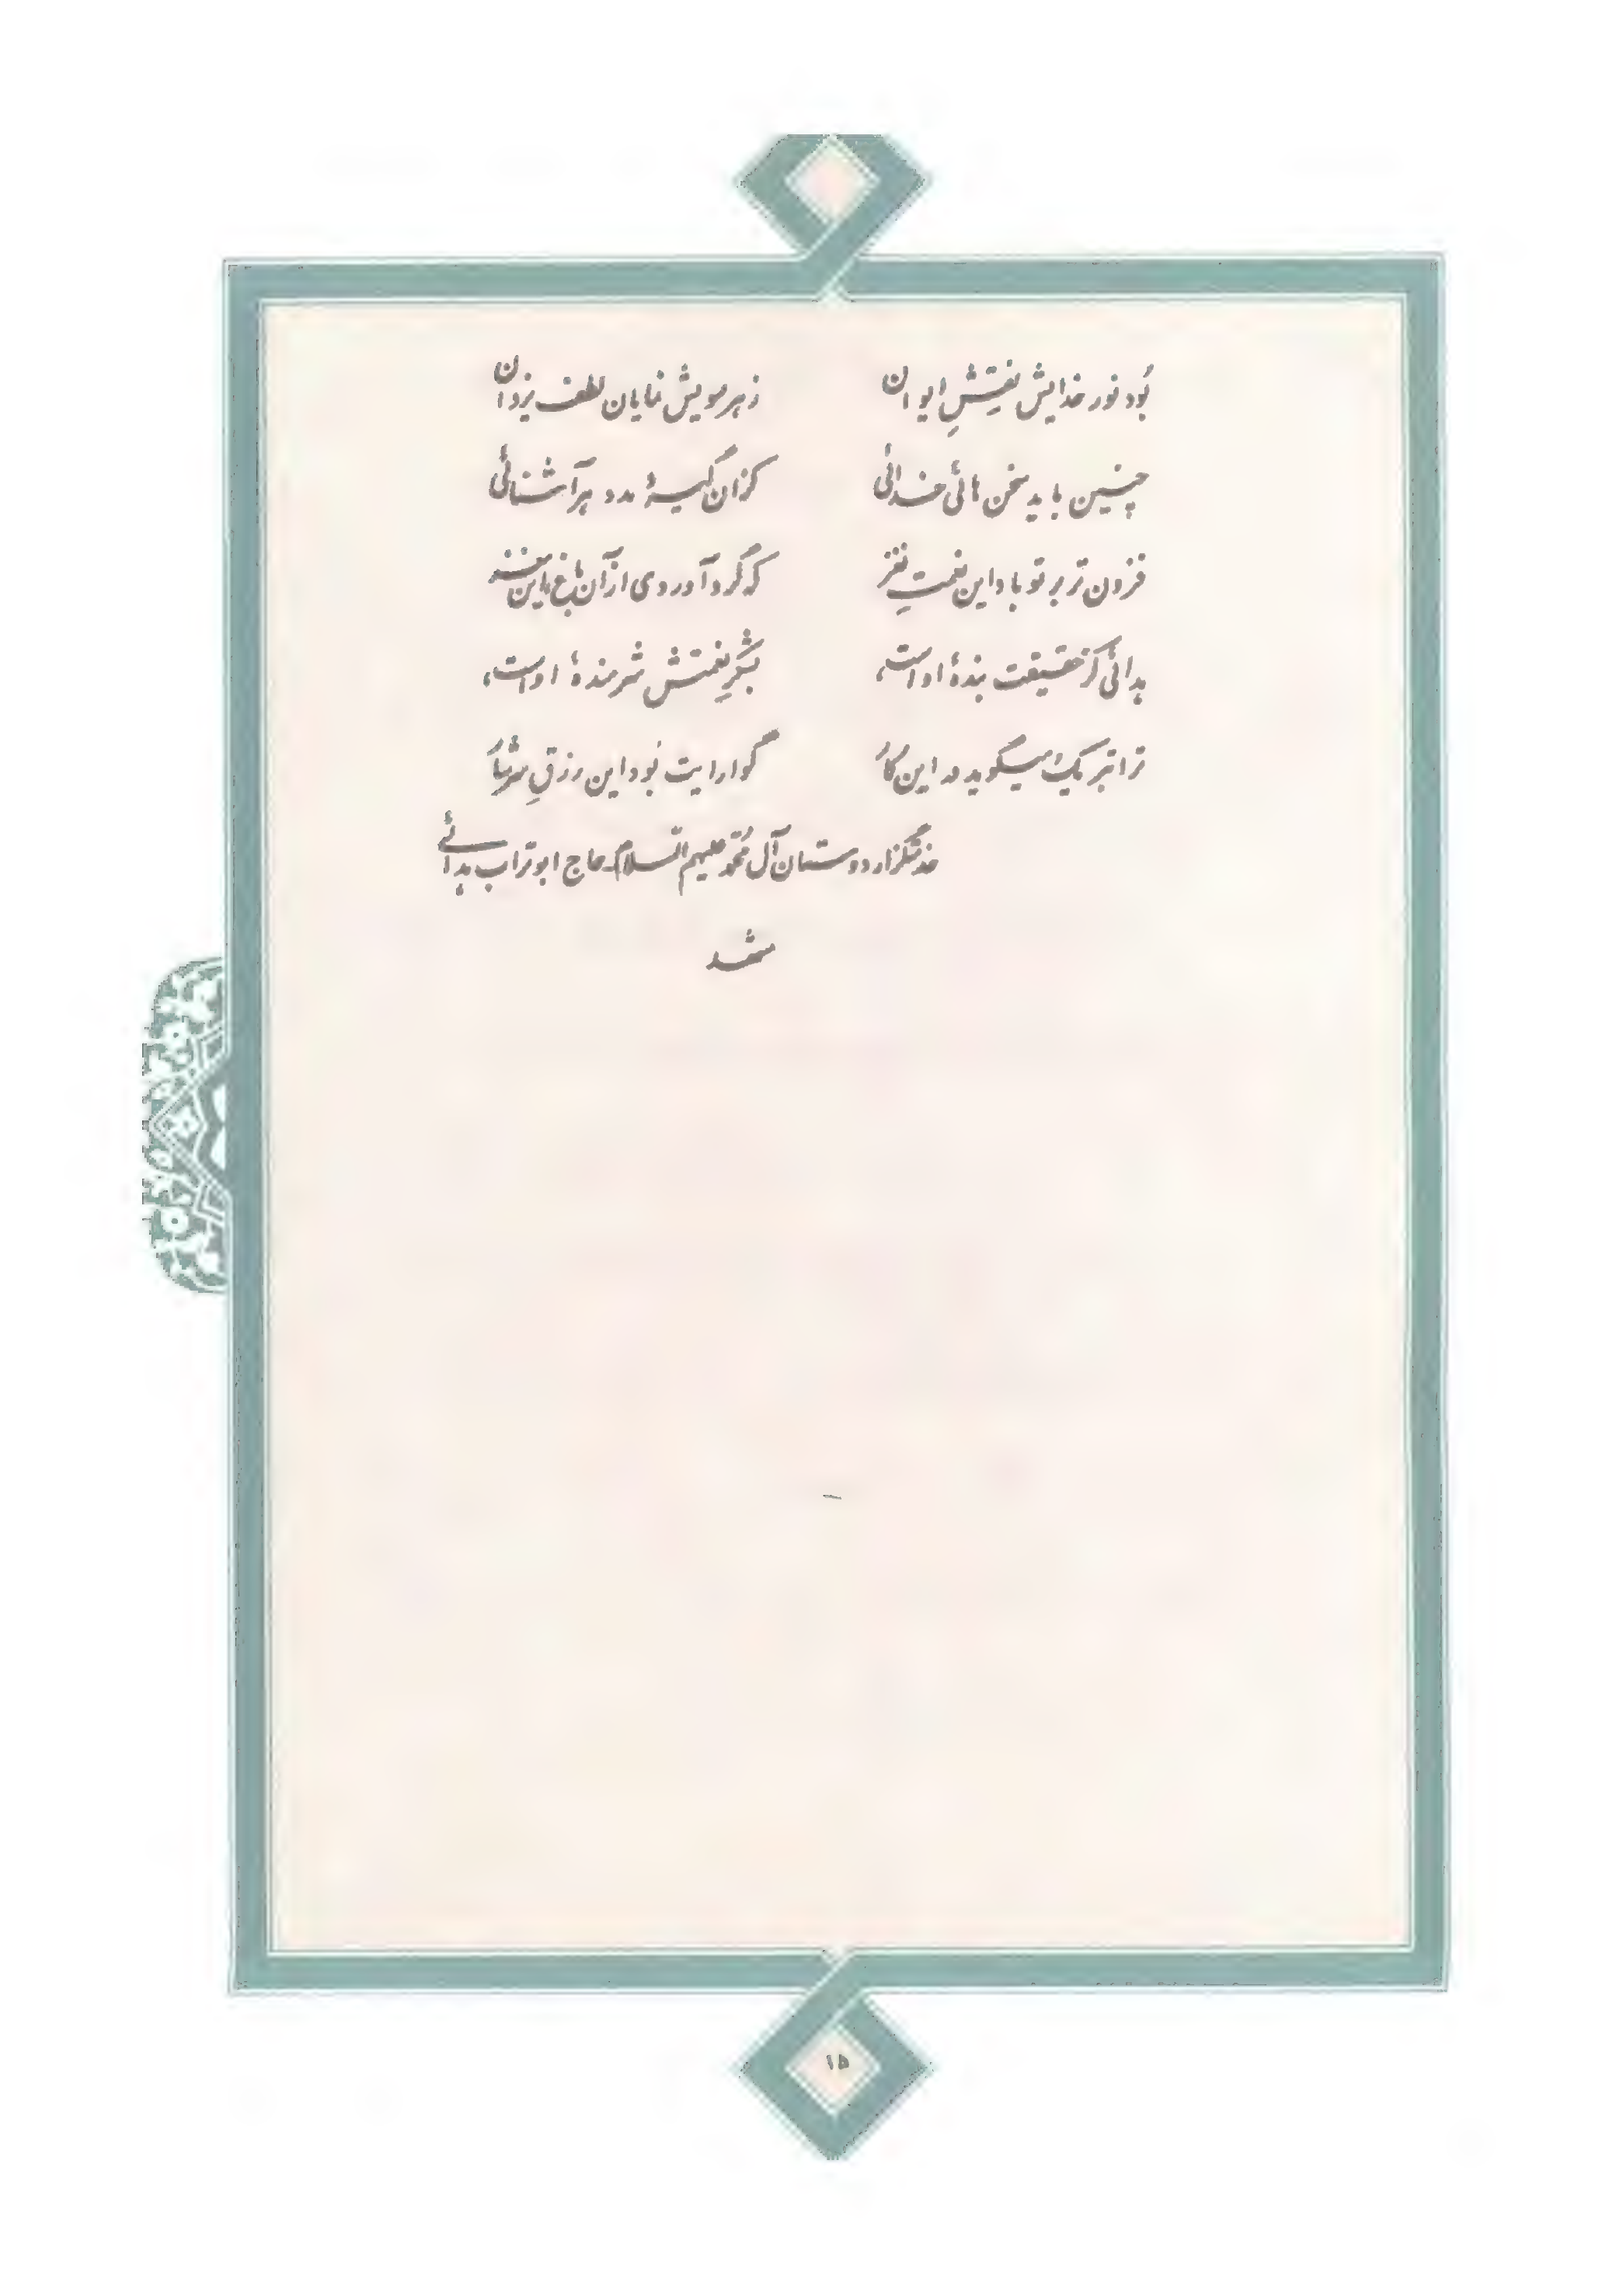 بُود نور خدایش نقشِ ایوان زهر سویش نمایان لطف یزدان
چنین باید سخن هائی خدائی کزان گیرد مدد هر آشنائی
فزون تر بر تو باد این نعمتِ نغز که گرد آوردی از آن باغ با این
هدائی کز حقیقت بندهٔ او است بشکرِ نعمتش شرمندهٔ او است
ترا تبریک میگوید در این کار گوارایت بُود این رزقِ سرشار
خدمتگزار دوستان آل محمّد علیهم السلام حاج ابوتراب هدائی
مشهد
۱۵